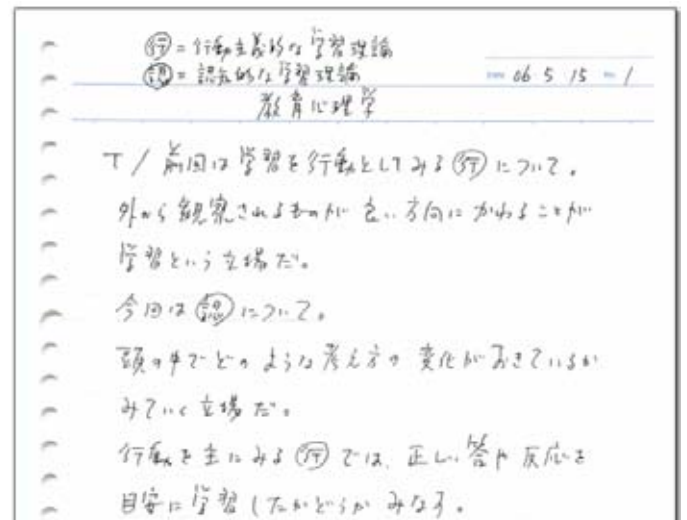 ㊗行=行動主義的な学習理論
㊗認=認知的な学習理論
06 5 15 1
教育心理学
T/前回は学習を行動としてみる行について。
外から観察されるものが良い方向にかわることが
学習という立場だ。
今回は認について。
頭の中でどのような考え方の変化がおきているか
みていく立場だ。
行動を主にみる行では、正しい答や反応を
目安に学習したかどうかみなす。